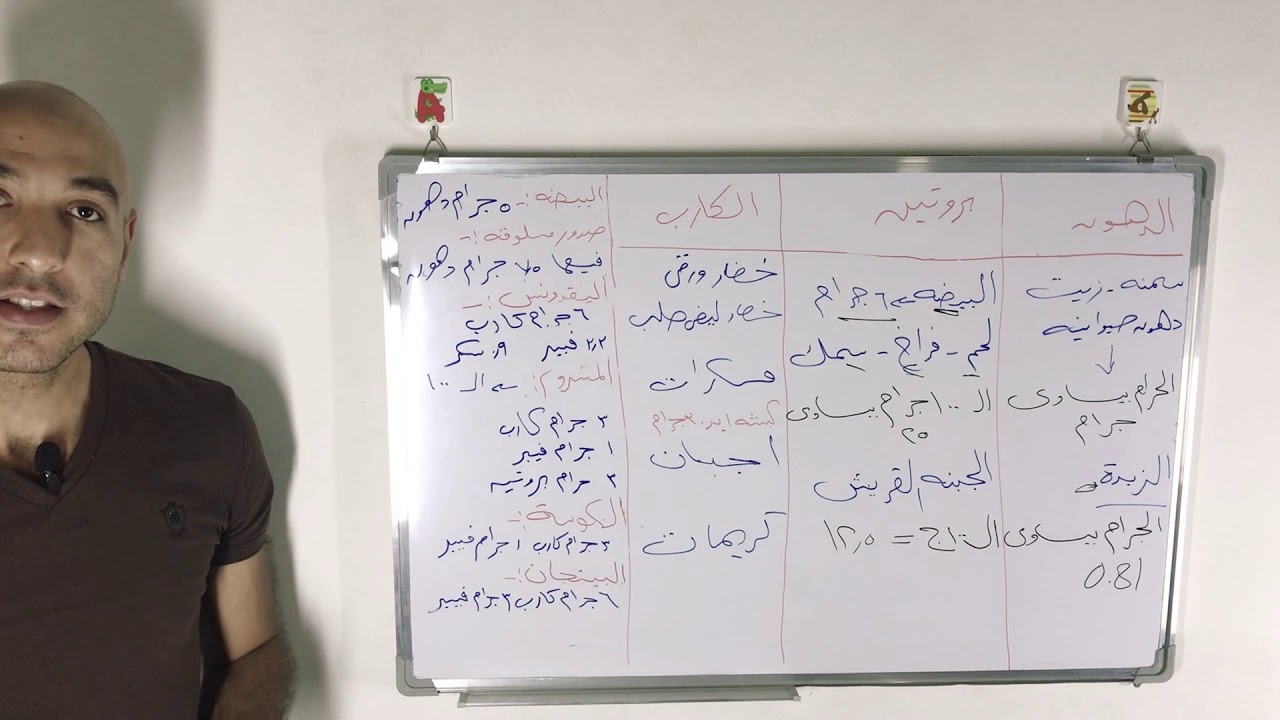 الدهون
سمنه - زيت
دهون حيوانيه
↓
الجرام يساوى
جرام
الزبدة
الجرام يساوى
0.81
بروتين
البيضه ← ٦ جرام
لحم - فراخ - سمك
الـ ١٠٠ جرام يساوى
٢٥
الجبنه القريش
= ١٢,٥
الكارب
خضار ورقى
خضار ليفى صلب
مكسرات
أجبان
كريمات
البيضه :-
٥ جرام دهون
صدور مسلوقه :-
فيها ٧,٥ جرام دهون
البقدونس :-
٦ جرام كارب
٢,٢ فيبر ٩, سكر
المشروم : ← الـ ١٠٠
٣ جرام كارب
١ جرام فيبر
٣ جرام بروتين
الكوسة :-
٣ جرام كارب ١ جرام فيبر
البيتنجان :-
٦ جرام كارب ٣ جرام فيبر
A